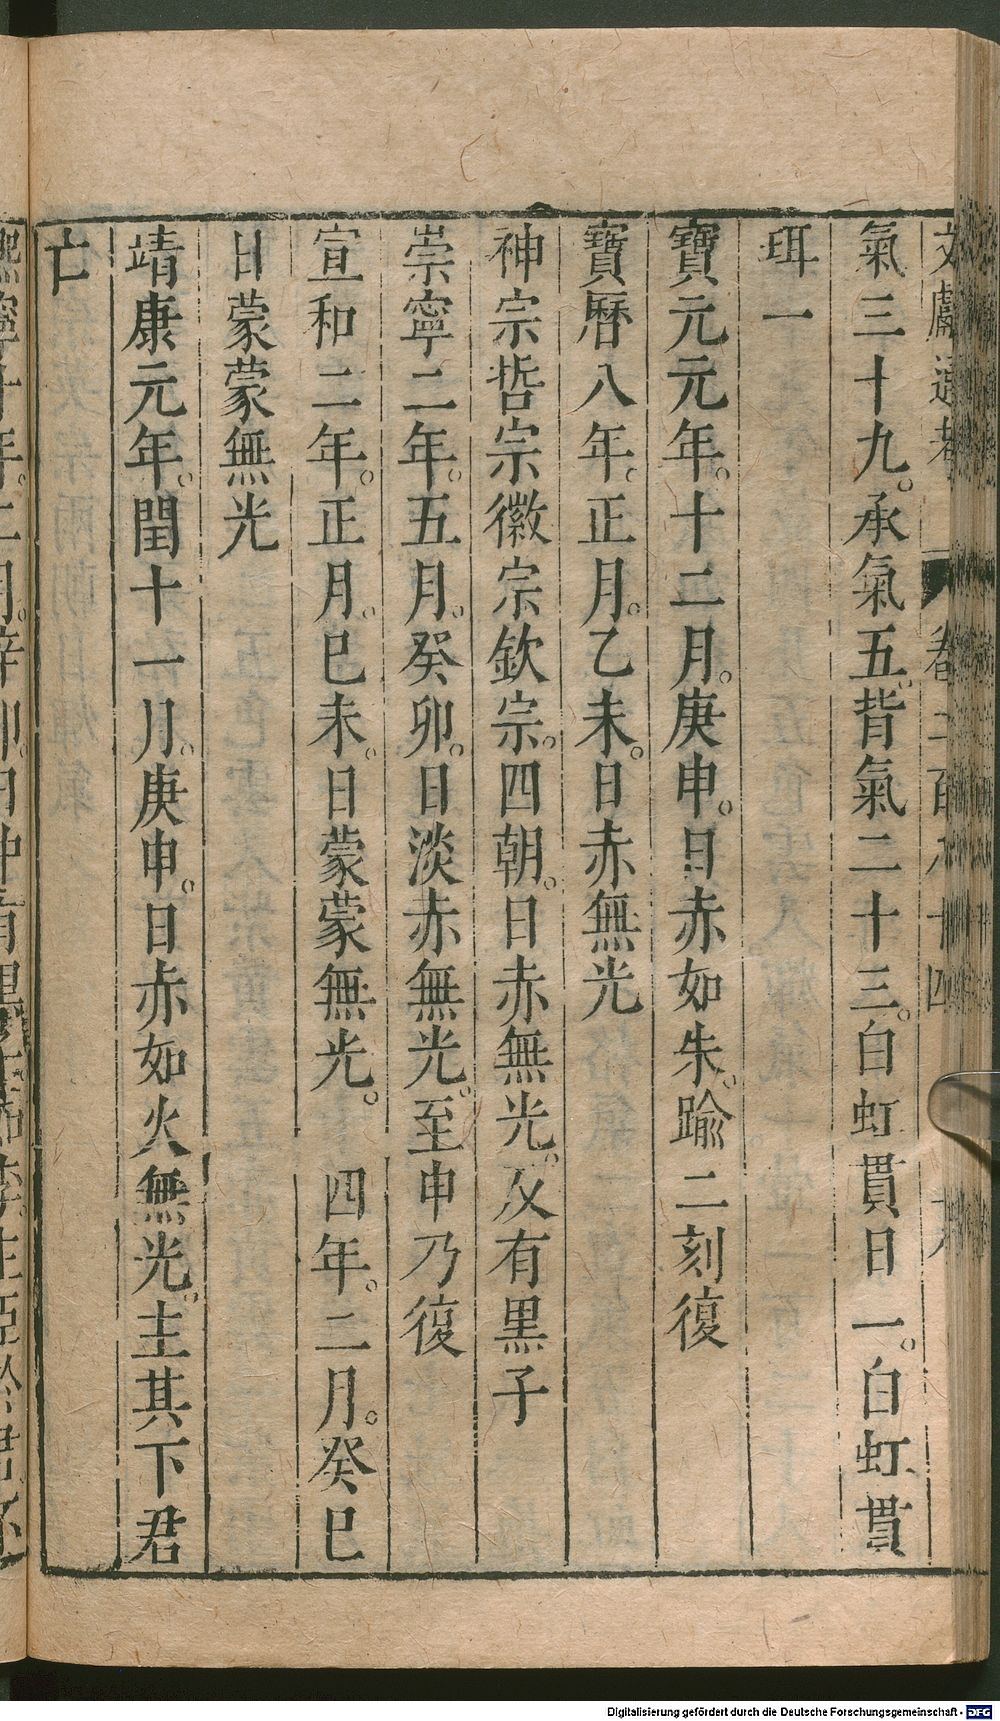 文獻通考 卷二百八十四
氣三十九。承氣五。背氣二十三。白虹貫日一。白虹貫
珥一
寶元元年。十二月。庚申。日赤如朱。踰二刻復
寶曆八年。正月。乙未。日赤無光
神宗哲宗徽宗欽宗。四朝。日赤無光。及有黑子
崇寧二年。五月。癸卯。日淡赤無光。至申乃復
宣和二年。正月。巳未。日蒙蒙無光。 四年。二月。癸巳
日蒙蒙無光
靖康元年。閏十一月。庚申。日赤如火無光。主其下君
亡
熙寧十年。二月。辛卯。日中有黑
Digitalisierung gefördert durch die Deutsche Forschungsgemeinschaft - DFG